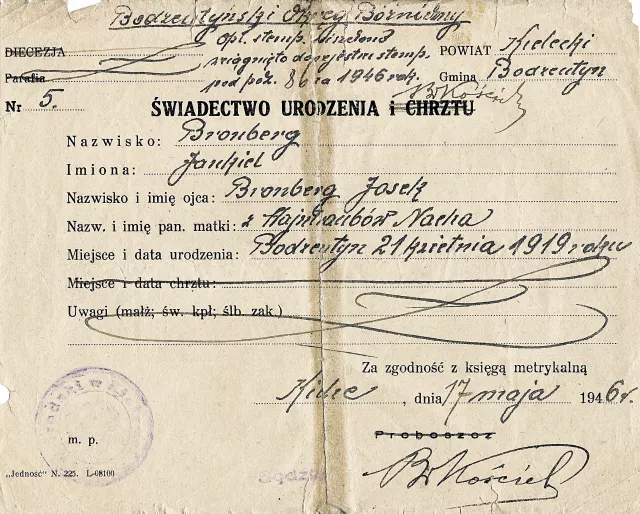 Bodzentyński Okręg Bóżniczny
DIECEZJA
Parafia
Opł. stemp.
wciągnięto do rejestru stemp.
pod poz. 8 1946 rok.
POWIAT Kielecki
Gmina Bodzentyn
BrKościel
Nr 5.
ŚWIADECTWO URODZENIA i CHRZTU
Nazwisko: Bronberg
Imiona: Jankiel
Nazwisko i imię ojca: Bronberg Josek
Nazw. i imię pan. matki: z Hajnbaubów Nacha
Miejsce i data urodzenia: Bodzentyn 21 kwietnia 1919 roku
Miejsce i data chrztu:
Uwagi (małż; św. kpł; ślb. zak.)
Za zgodność z księgą metrykalną
Kielce, dnia 17 maja 1946 r.
m. p.
Proboszcz
BrKościel
„Jedność" N. 225. L-08100